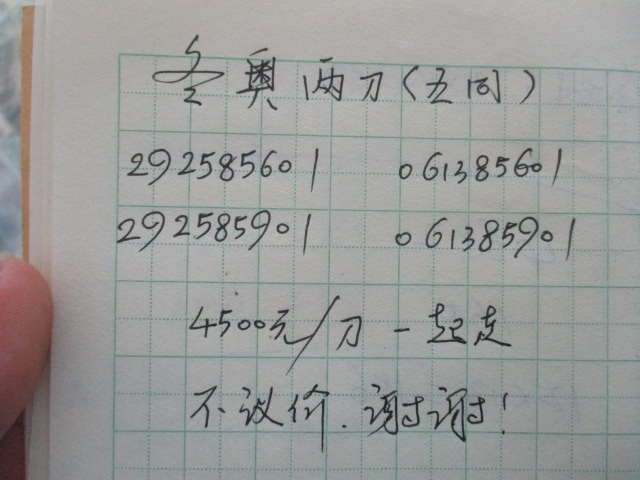 冬奥两刀(五同)
292585601 061385601
292585901 061385901
4500元/刀 一起走
不议价.谢谢!